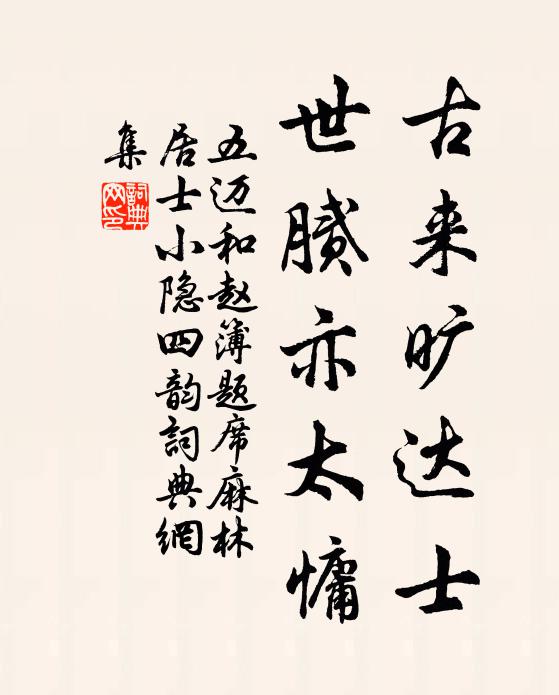 古来旷达士
世膩亦太慵
五迈和赵簿题席麻林
居士小隐四韵詞典網
集
詞典
网印